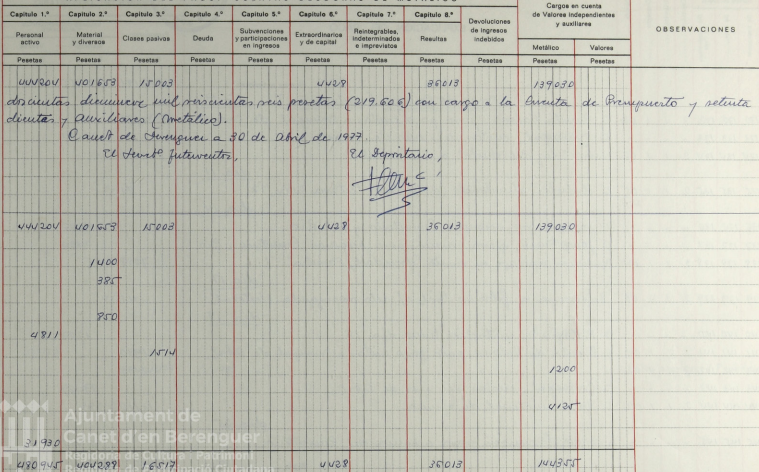 Cargos en cuenta de Valores independientes y auxiliares
Capítulo 1.º Capítulo 2.º Capítulo 3.º Capítulo 4.º Capítulo 5.º Capítulo 6.º Capítulo 7.º Capítulo 8.º Devoluciones de ingresos indebidos OBSERVACIONES
Personal activo Material y diversos Clases pasivos Deuda Subvenciones y participaciones en ingresos Extraordinarios y de capital Reintegrables, indeterminados e imprevistos Resultas Metálico Valores
Pesetas Pesetas Pesetas Pesetas Pesetas Pesetas Pesetas Pesetas Pesetas Pesetas Pesetas
444204 401653 15003 4428 36013 139030
doscientas diecinueve mil seiscientas seis pesetas (219.606) con cargo a la Cuenta de Presupuesto y setenta
dientes y auxiliares (metálico).
Canet de Berenguer a 30 de Abril de 1977.
El Secretº Interventor, El Depositario,
444204 401653 15003 4428 36013 139030
1400
385
850
4811
1514
1200
4125
31930
480945 404288 16517 4428 36013 144355
Ajuntament de
Canet d'en Berenguer